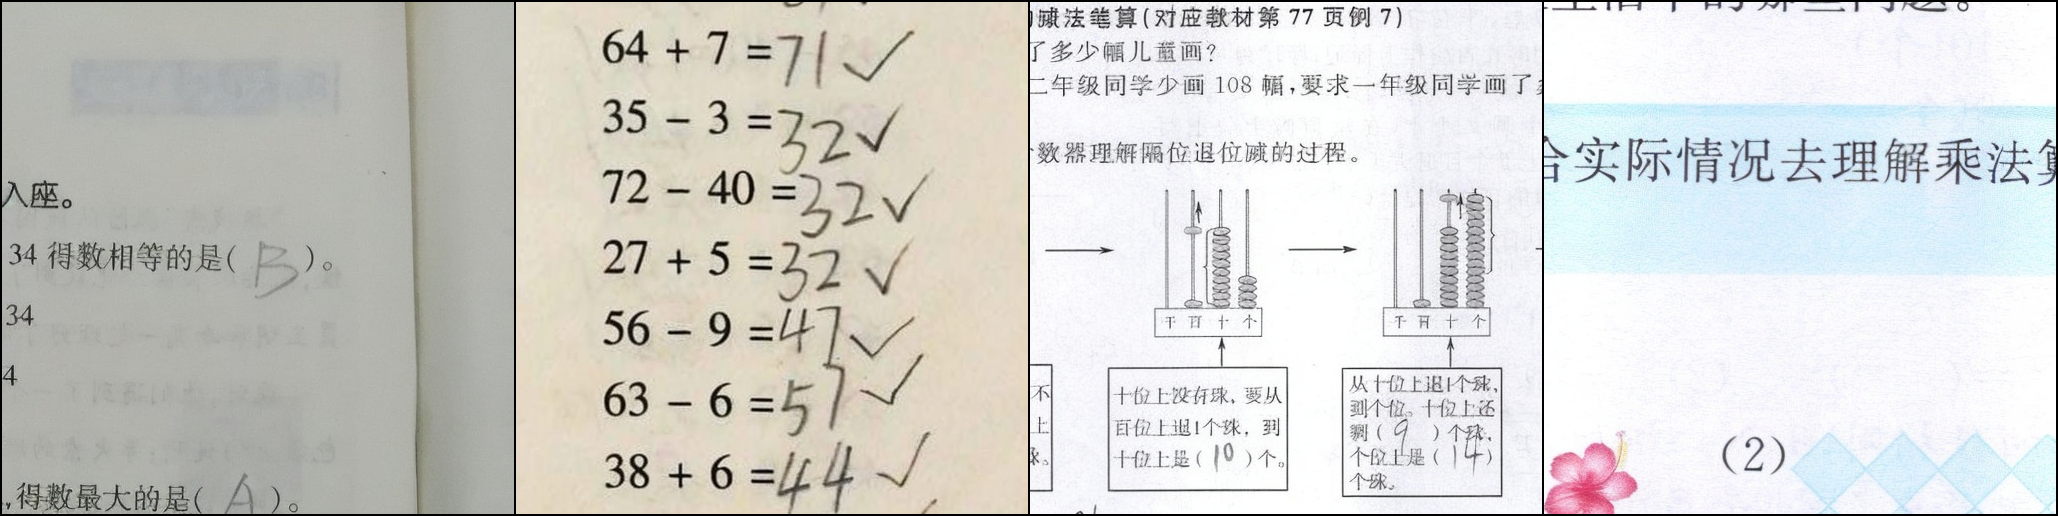 入座。
34 得数相等的是( B )。
34
4
,得数最大的是( A )。
64 + 7 =71✓
35 - 3 =32✓
72 - 40 =32✓
27 + 5 =32✓
56 - 9 =47✓
63 - 6 =57✓
38 + 6 =44✓
减法笔算(对应教材第 77 页例 7)
了多少幅儿童画?
二年级同学少画 108 幅,要求一年级同学画了
数器理解隔位退位减的过程。
千 百 十 个
千 百 十 个
不
上
十位上没有珠,要从
百位上退1个珠,到
十位上是( 10 )个。
从十位上退1个珠,
到个位。十位上还
剩( 9 )个珠,
个位上是( 14 )
个珠。
合实际情况去理解乘法算
(2)